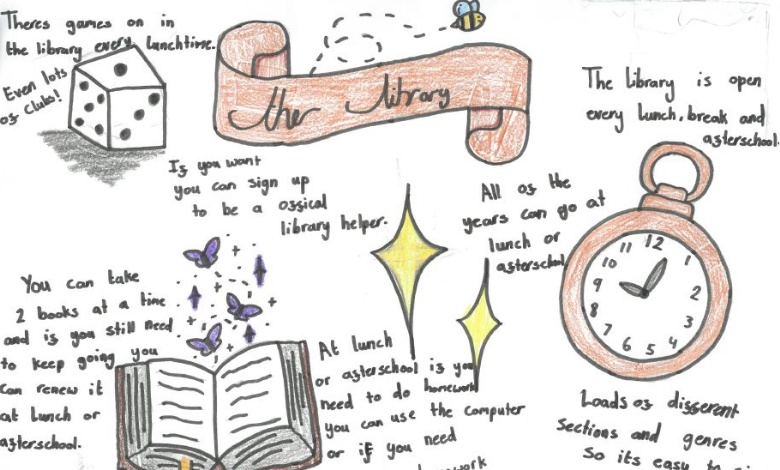 Theres games on in
the library every lunchtime.
Even lots
of clubs!
the library
The library is open
every lunch, break and
afterschool.
If you want
you can sign up
to be a offical
library helper.
All of the
years can go at
lunch or
afterschool.
12
1
2
3
4
5
6
7
8
9
10
11
You can take
2 books at a time
and if you still need
to keep going you
can renew it
at lunch or
afterschool.
At lunch
or afterschool if you
need to do homework
you can use the computer
or if you need
Loads of different
sections and genres
So its easy to